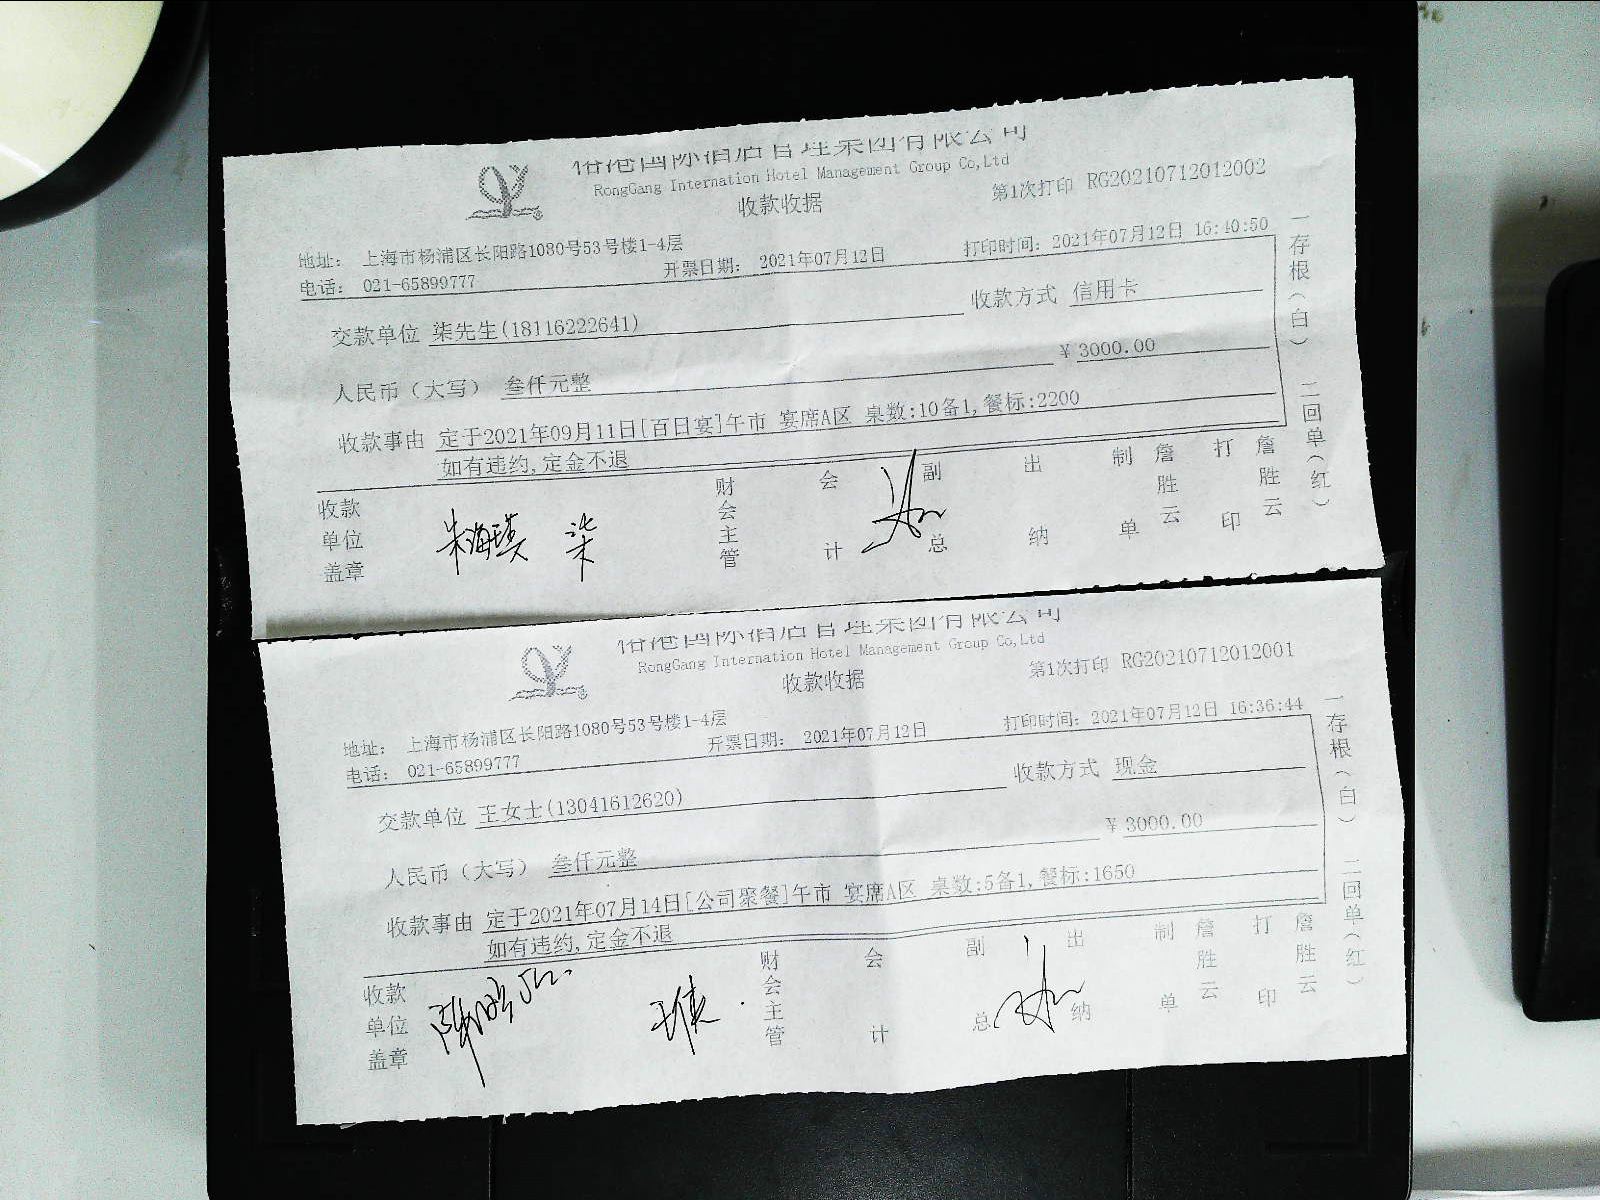 国际酒店管理集团有限公司
RongGang Internation Hotel Management Group Co,Ltd
收款收据
第1次打印 RG20210712012002
地址： 上海市杨浦区长阳路1080号53号楼1-4层
电话： 021-65899777
开票日期： 2021年07月12日
打印时间：2021年07月12日 16:40:50
交款单位 柒先生(18116222641)
收款方式 信用卡
人民币（大写） 叁仟元整
￥3000.00
收款事由 定于2021年09月11日[百日宴]午市 宴席A区 桌数:10备1,餐标:2200
如有违约,定金不退
收款单位盖章
朱海瑛 柒
财会主管
会计
副总
出纳
制单 詹胜云
打印 詹胜云
一存根（白） 二回单（红）
国际酒店管理集团有限公司
RongGang Internation Hotel Management Group Co,Ltd
收款收据
第1次打印 RG20210712012001
地址： 上海市杨浦区长阳路1080号53号楼1-4层
电话： 021-65899777
开票日期： 2021年07月12日
打印时间：2021年07月12日 16:36:44
交款单位 王女士(13041612620)
收款方式 现金
人民币（大写） 叁仟元整
￥3000.00
收款事由 定于2021年07月14日[公司聚餐]午市 宴席A区 桌数:5备1,餐标:1650
如有违约,定金不退
收款单位盖章
财会主管
会计
副总
出纳
制单 詹胜云
打印 詹胜云
一存根（白） 二回单（红）